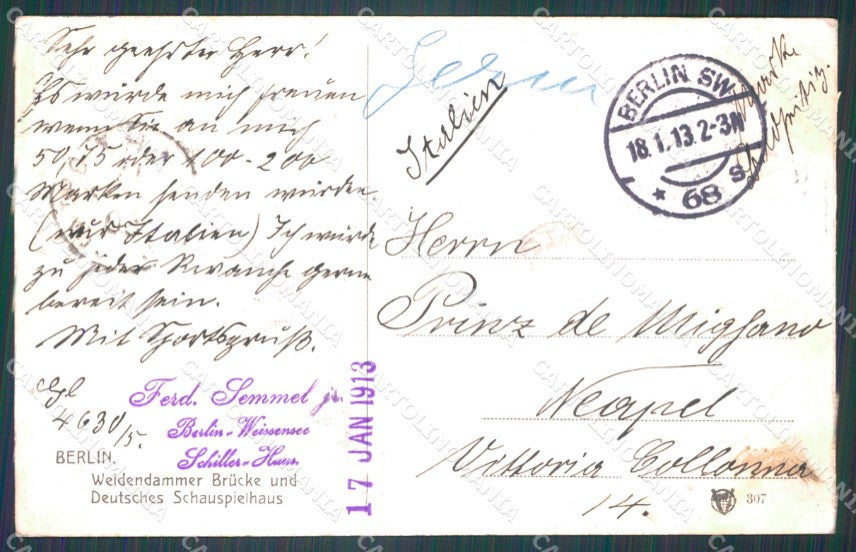 Sehr geehrter Herr!
Es würde mich freuen
wenn Sie an mich
50, 75 oder 100-200
Marken senden würden.
(nur Italien) Ich würde
zu jeder Revanche gerne
bereit sein.
Mit Sportsgruß.
4630/5.
Ferd. Semmel jr.
Berlin-Weissensee
Schiller-Haus
17 JAN 1913
BERLIN.
Weidendammer Brücke und
Deutsches Schauspielhaus
Italien
BERLIN SW
18.1.13.2-3N
* 68 s
Marke
Herrn
Prinz de Migliano
Neapel
Vittoria Collonna
14.
307
CARTOLINOMANIA